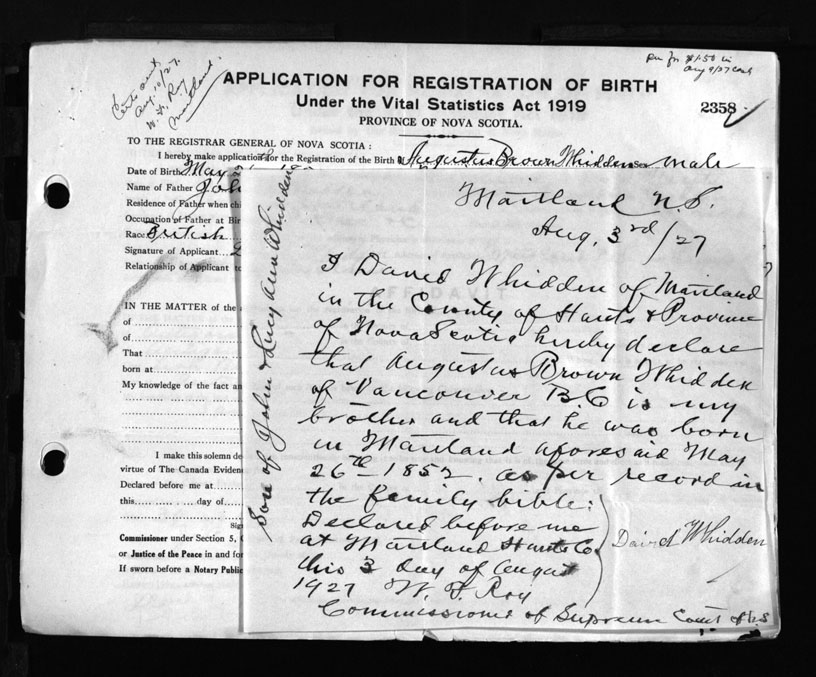 Certs sent
Aug. 10/27.
W. F. Roy
Maitland
$1.50 in
Aug 9/27
APPLICATION FOR REGISTRATION OF BIRTH
Under the Vital Statistics Act 1919
2358
PROVINCE OF NOVA SCOTIA.
TO THE REGISTRAR GENERAL OF NOVA SCOTIA :
I hereby make application for the Registration of the Birth of Augustus Brown Whidden Sex male
Date of Birth May
Name of Father John
Residence of Father when chi
Occupation of Father at Bir
Race British
Signature of Applicant
Relationship of Applicant to
IN THE MATTER of the
of
of
That
born at
My knowledge of the fact an
I make this solemn de
virtue of The Canada Eviden
Declared before me at
this day of
Sig
Commissioner under Section 5,
or Justice of the Peace in and for
If sworn before a Notary Public
Son of John & Lucy Ann Whidden
Maitland N.S.
Aug. 3rd/27
I David Whidden of Maitland
in the County of Hants & Province
of Nova Scotia hereby declare
that Augustus Brown Whidden
of Vancouver B C is my
brother and that he was born
in Maitland aforesaid May
26th 1852. as per record in
the family bible.
Declared before me
at Maitland Hants Co.
this 3 day of August
1927 W. F. Roy
David Whidden
Commissioner of Supreme Court of N.S